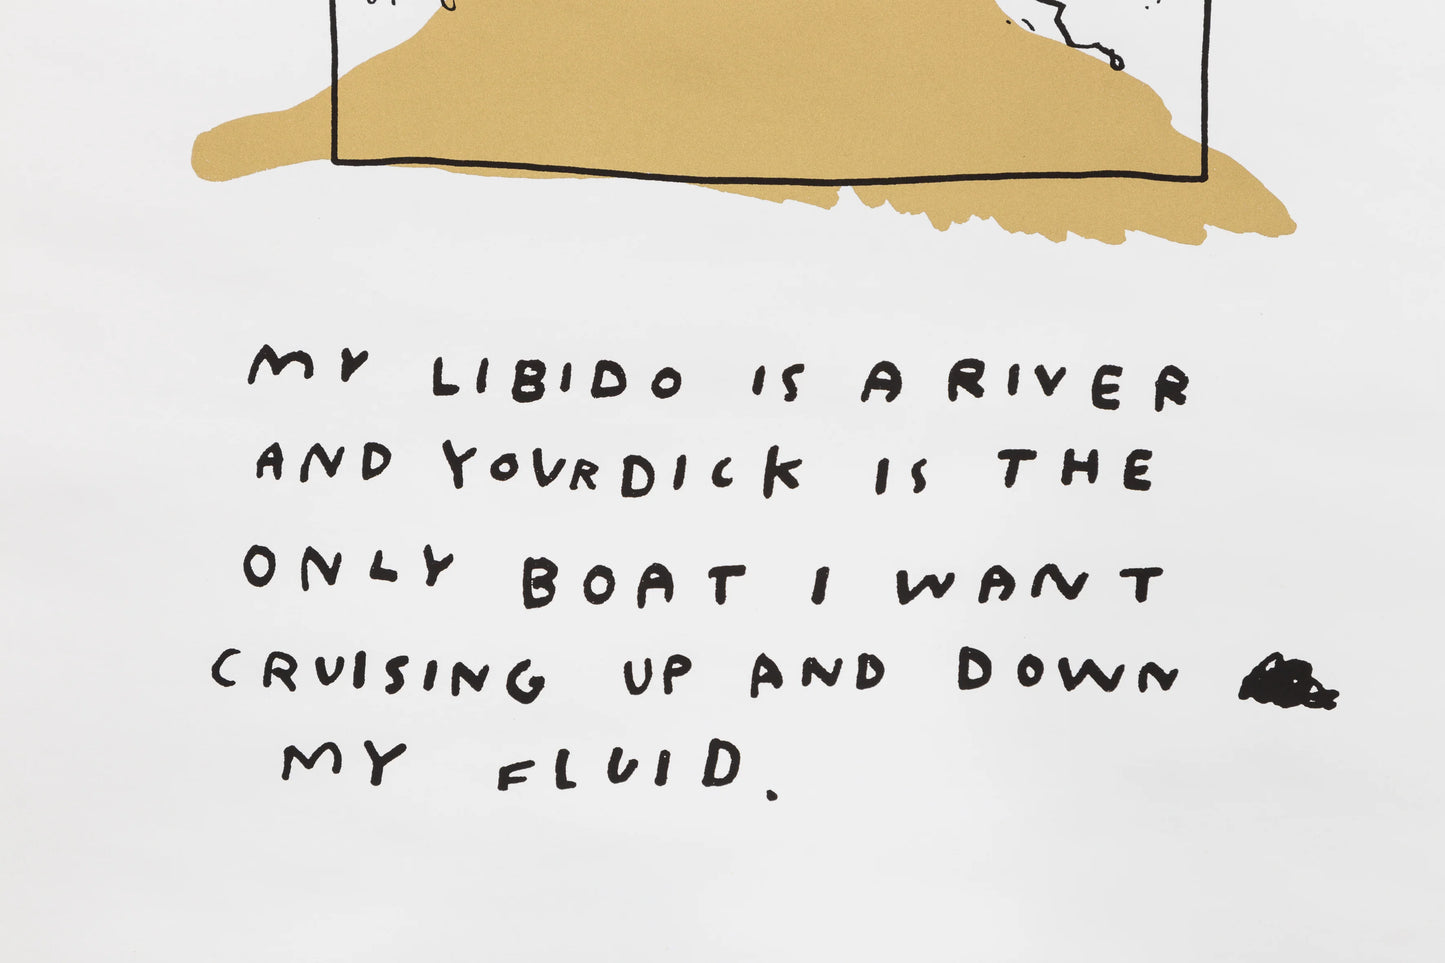 MY LIBIDO IS A RIVER
AND YOUR DICK IS THE
ONLY BOAT I WANT
CRUISING UP AND DOWN
MY FLUID.